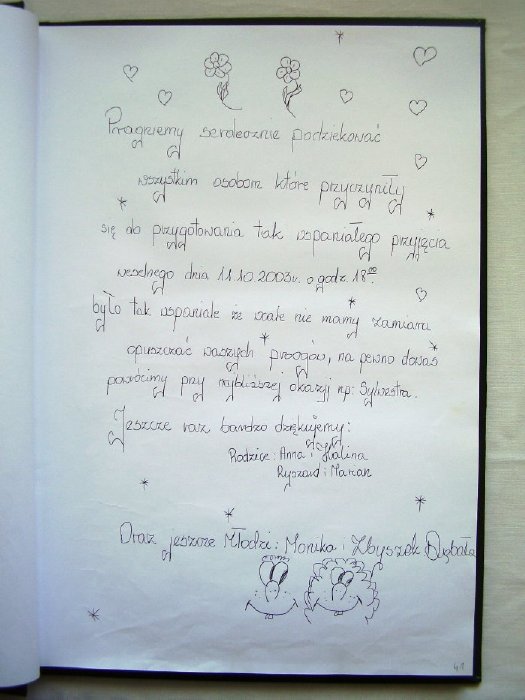 Pragniemy serdecznie podziękować
wszystkim osobom które przyczyniły
się do przygotowania tak wspaniałego przyjęcia
weselnego dnia 11.10.2003r. o godz. 18⁰⁰.
było tak wspaniale że wcale nie mamy zamiaru
opuszczać waszych progów, na pewno do was
powrócimy przy najbliższej okazji np: Sylwestra.
Jeszcze raz bardzo dziękujemy:
Rodzice: Anna i Halina
Ryszard i Marian
Oraz jeszcze Młodzi: Monika i Zbyszek
41